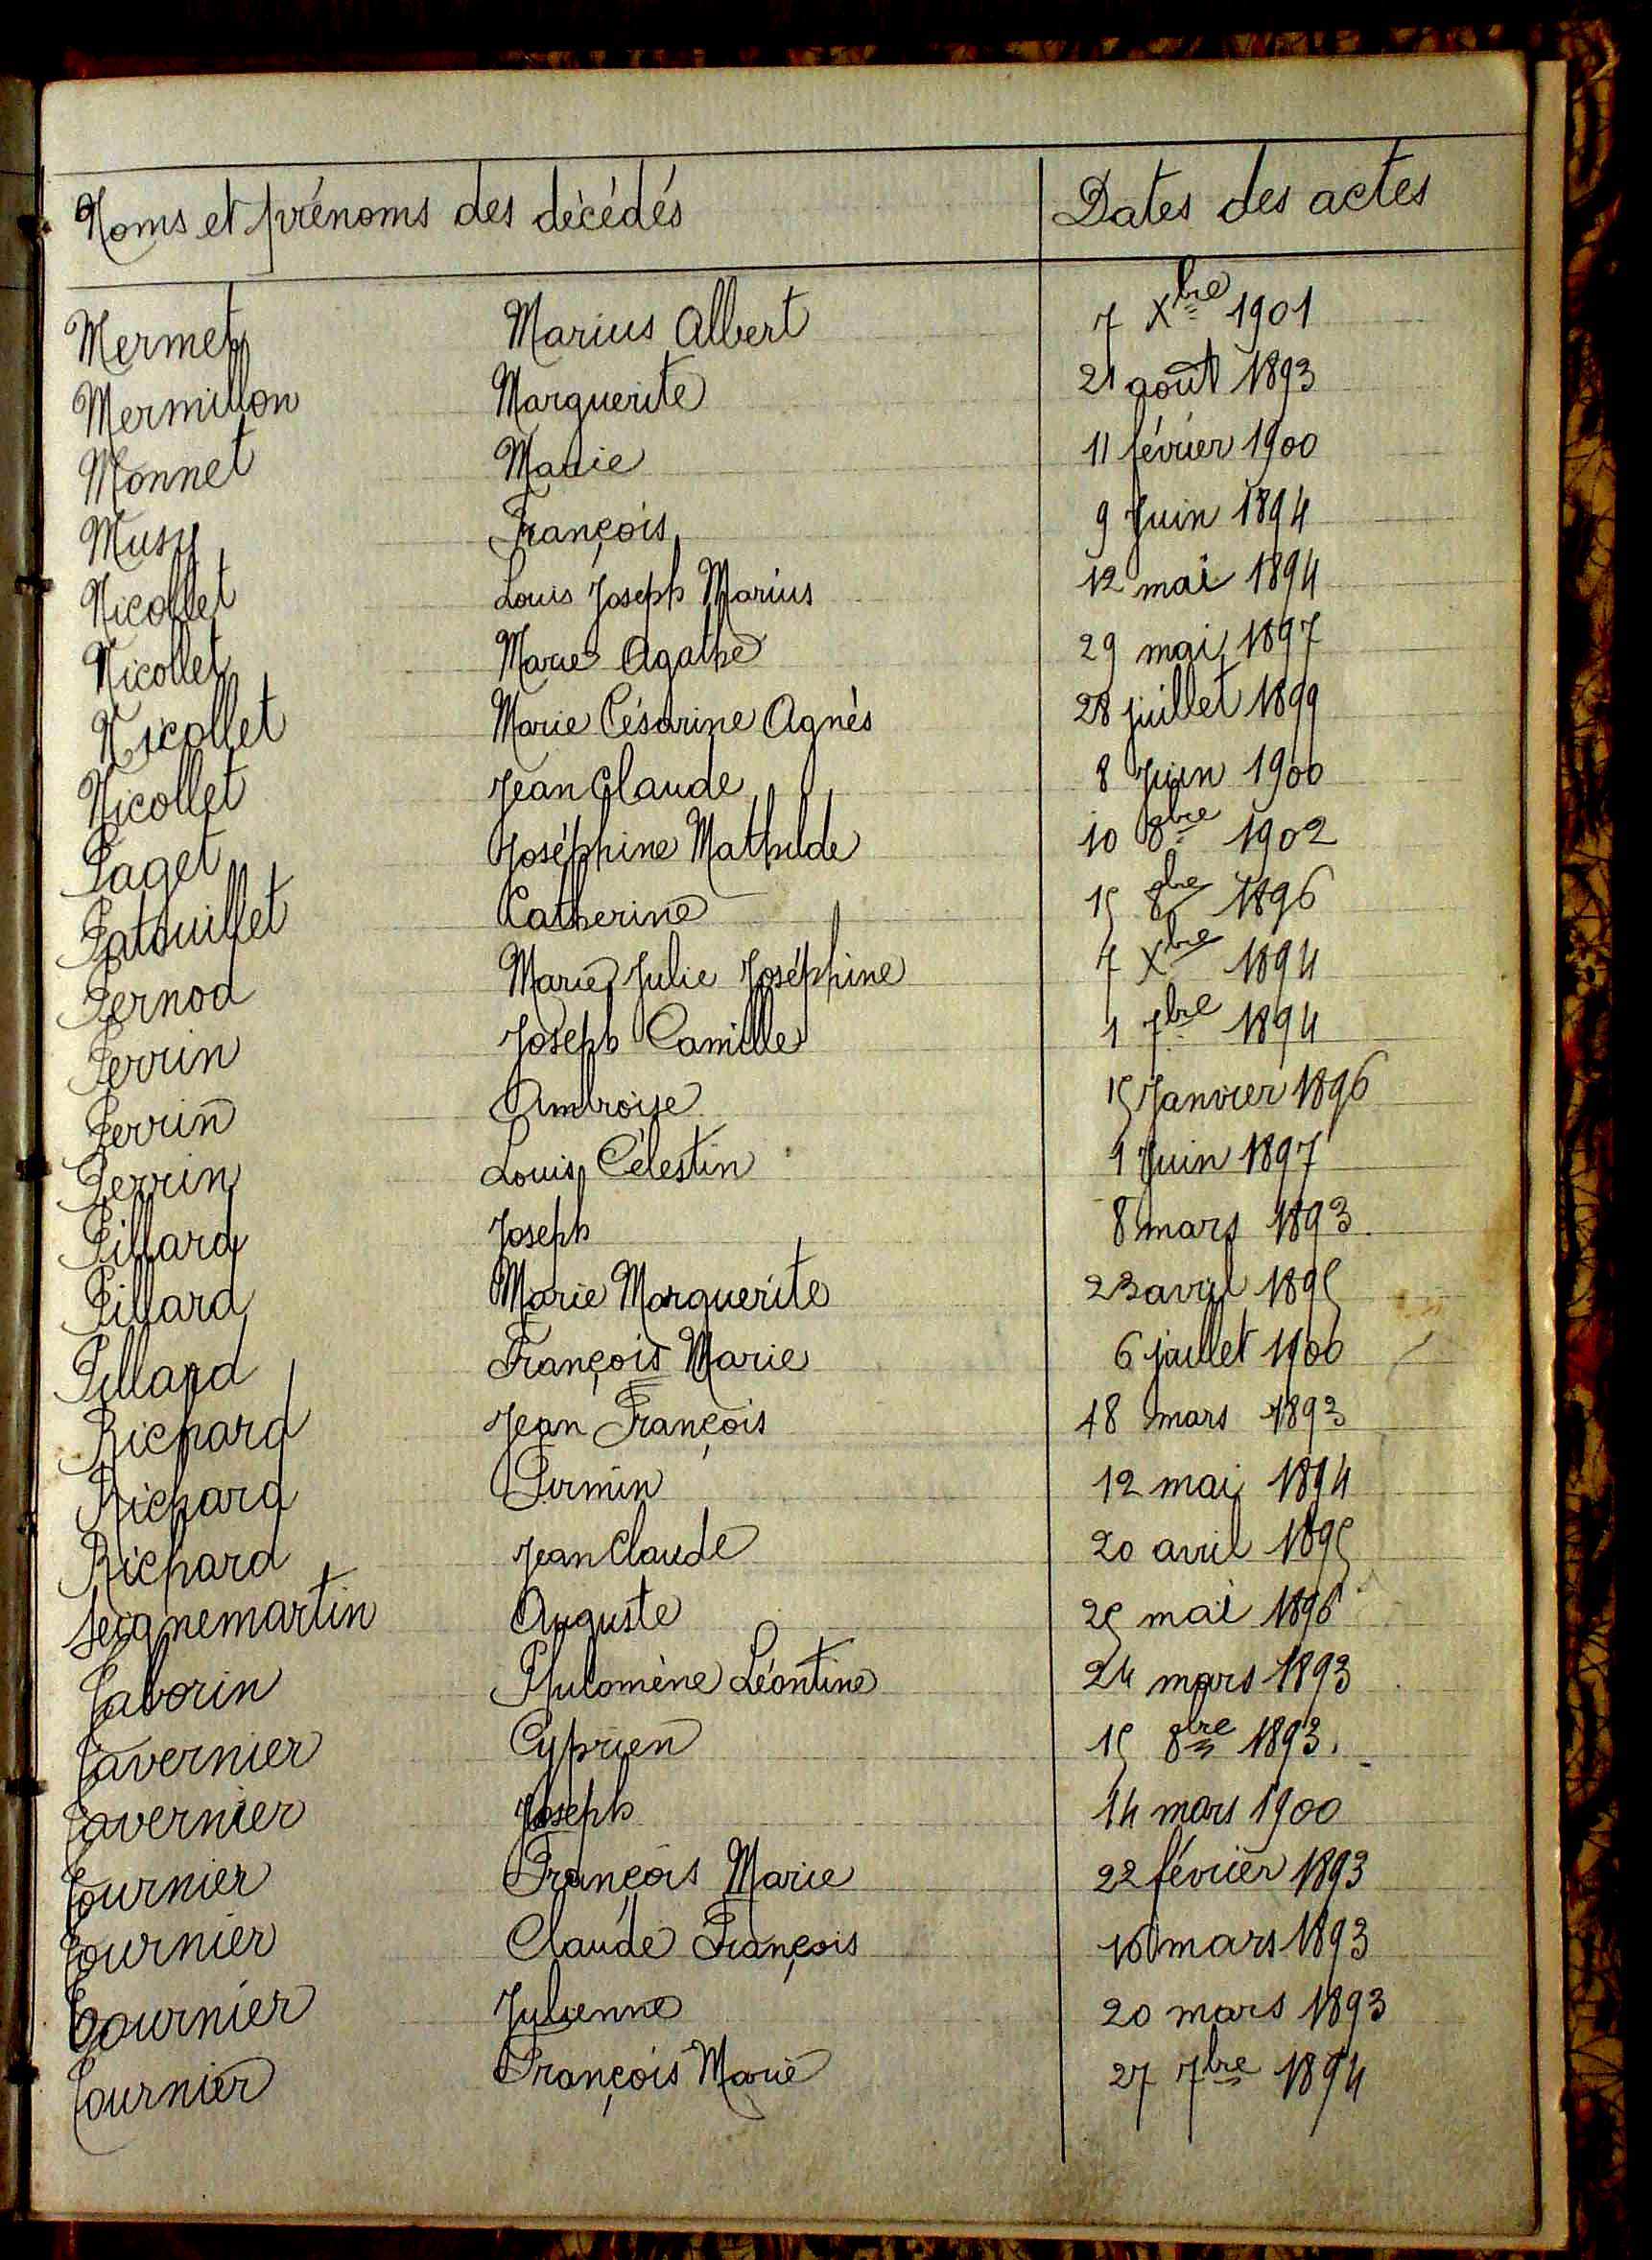 Noms et prénoms des décédés Dates des actes
Mermet Marius Albert 7 Xbre 1901
Mermillon Marguerite 21 août 1893
Monnet Marie 11 février 1900
Musy François 9 Juin 1894
Nicollet Louis Joseph Marius 12 mai 1894
Nicollet Marie Agathe 29 mai 1897
Nicollet Marie Césarine Agnès 28 juillet 1899
Nicollet Jean Claude 8 Juin 1900
Paget Joséphine Mathilde 10 8bre 1902
Patouillet Catherine 15 8bre 1896
Pernod Marie Julie Joséphine 7 Xbre 1894
Perrin Joseph Camille 1 7bre 1894
Perrin Ambroise 15 Janvier 1896
Perrin Louis Célestin 1 Juin 1897
Pillard Joseph 8 mars 1893
Pillard Marie Marguerite 23 avril 1895
Pillard François Marie 6 juillet 1900
Richard Jean François 18 mars 1893
Richard Firmin 12 mai 1894
Richard Jean Claude 20 avril 1895
Seignemartin Auguste 25 mai 1896
Taborin Philomène Léontine 24 mars 1893
Tavernier Cyprien 15 8bre 1893.
Tavernier Joseph 14 mars 1900
Tournier François Marie 22 février 1893
Tournier Claude François 16 mars 1893
Tournier Julienne 20 mars 1893
Tournier François Marie 27 7bre 1894